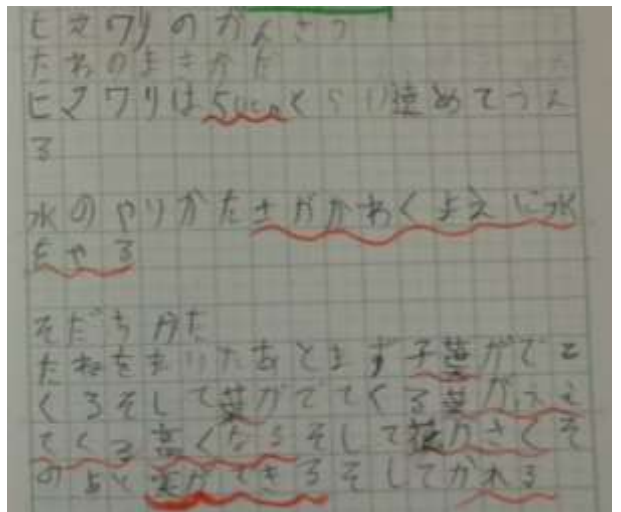 ヒマワリのかんさつ
たねのまきかた
ヒマワリは50cmくらい遠めてうえ
る
水のやりかた がかわくまえに水
をやる
そだちかた
たねをまいたあとまず子葉がでて
くるそして葉がでてくる葉がふえ
てくる高くなるそして花がさくそ
のあと実ができるそしてかれる